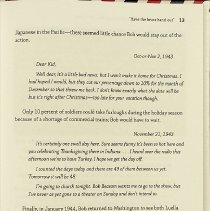 "Save the heart band out" 13
Japanese in the Pacific—there seemed little chance Bob would stay out of the
action.
Oct-or-Nov 2, 1943
Dear Kid,
Well dear, it's a little bad news, but I won't make it home for Christmas. I
had hoped I would, but they cut our percentage down to 10% for the month of
December so that threw me back. I don't know exactly what the date will be
but it's right after Christmas—too late for your vacation though.
Only 10 percent of soldiers could take furloughs during the holiday season
because of a shortage of commercial trains; Bob would have to wait.
November 21, 1943
It's certainly one swell day here. Sure seems funny; it's been so hot here and
you celebrating Thanksgiving there in Indiana. I heard over the radio this
afternoon we're to have Turkey. I hope we get the day off.
I counted the days today and there are 43 of them between us yet.
Tomorrow it will be 42.
I'm going to church tonight. Bob Beacom wants me to go to the show, but
I've never as yet gone to a theater on Sunday and don't intend to.
Finally, in January 1944, Bob returned to Washington to see both Luella